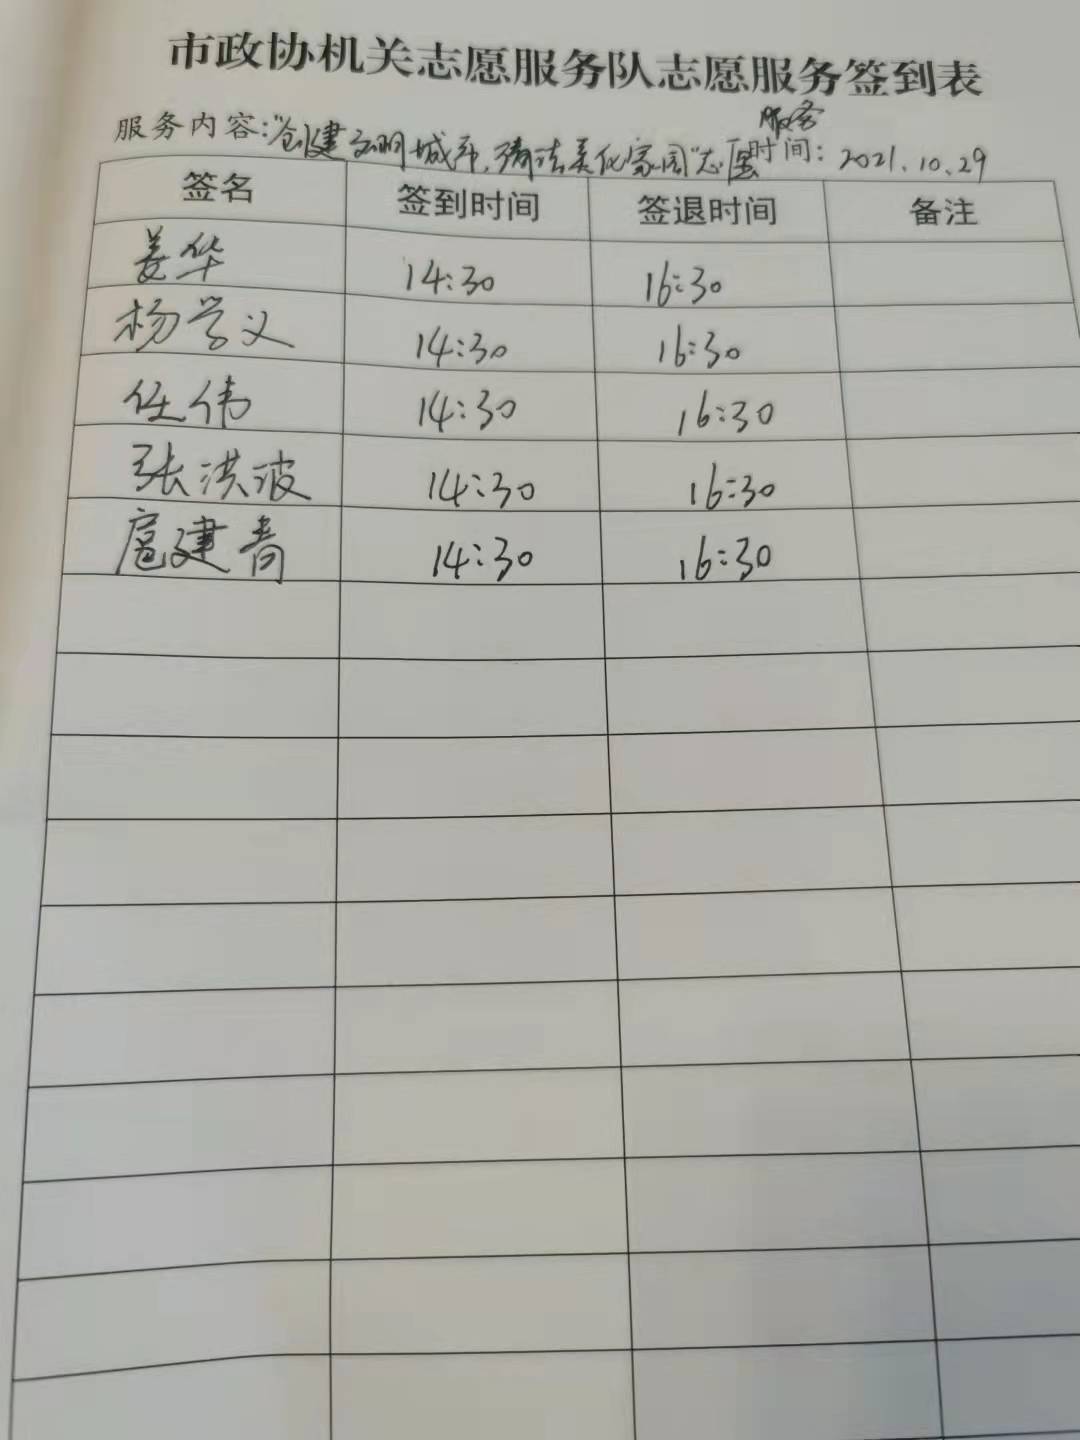 市政协机关志愿服务队志愿服务签到表
服务
服务内容：“创建文明城市，清洁美化家园”志愿 时间：2021.10.29
签名 签到时间 签退时间 备注
姜华 14:30 16:30
杨学义 14:30 16:30
任伟 14:30 16:30
张洪波 14:30 16:30
扈建青 14:30 16:30